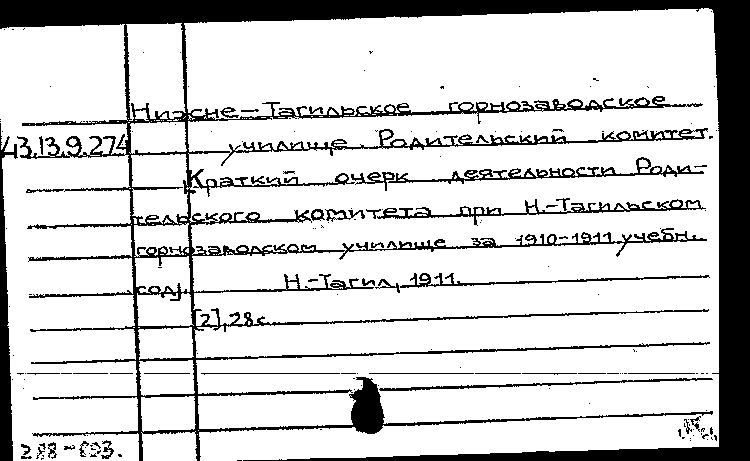 Нижне-Тагильское горнозаводское
43.13.9.274. училище. Родительский комитет.
Краткий очерк деятельности Роди-
тельского комитета при Н.-Тагильском
горнозаводском училище за 1910-1911 учебн.
год.
Н.-Тагил, 1911.
[2], 28 с.